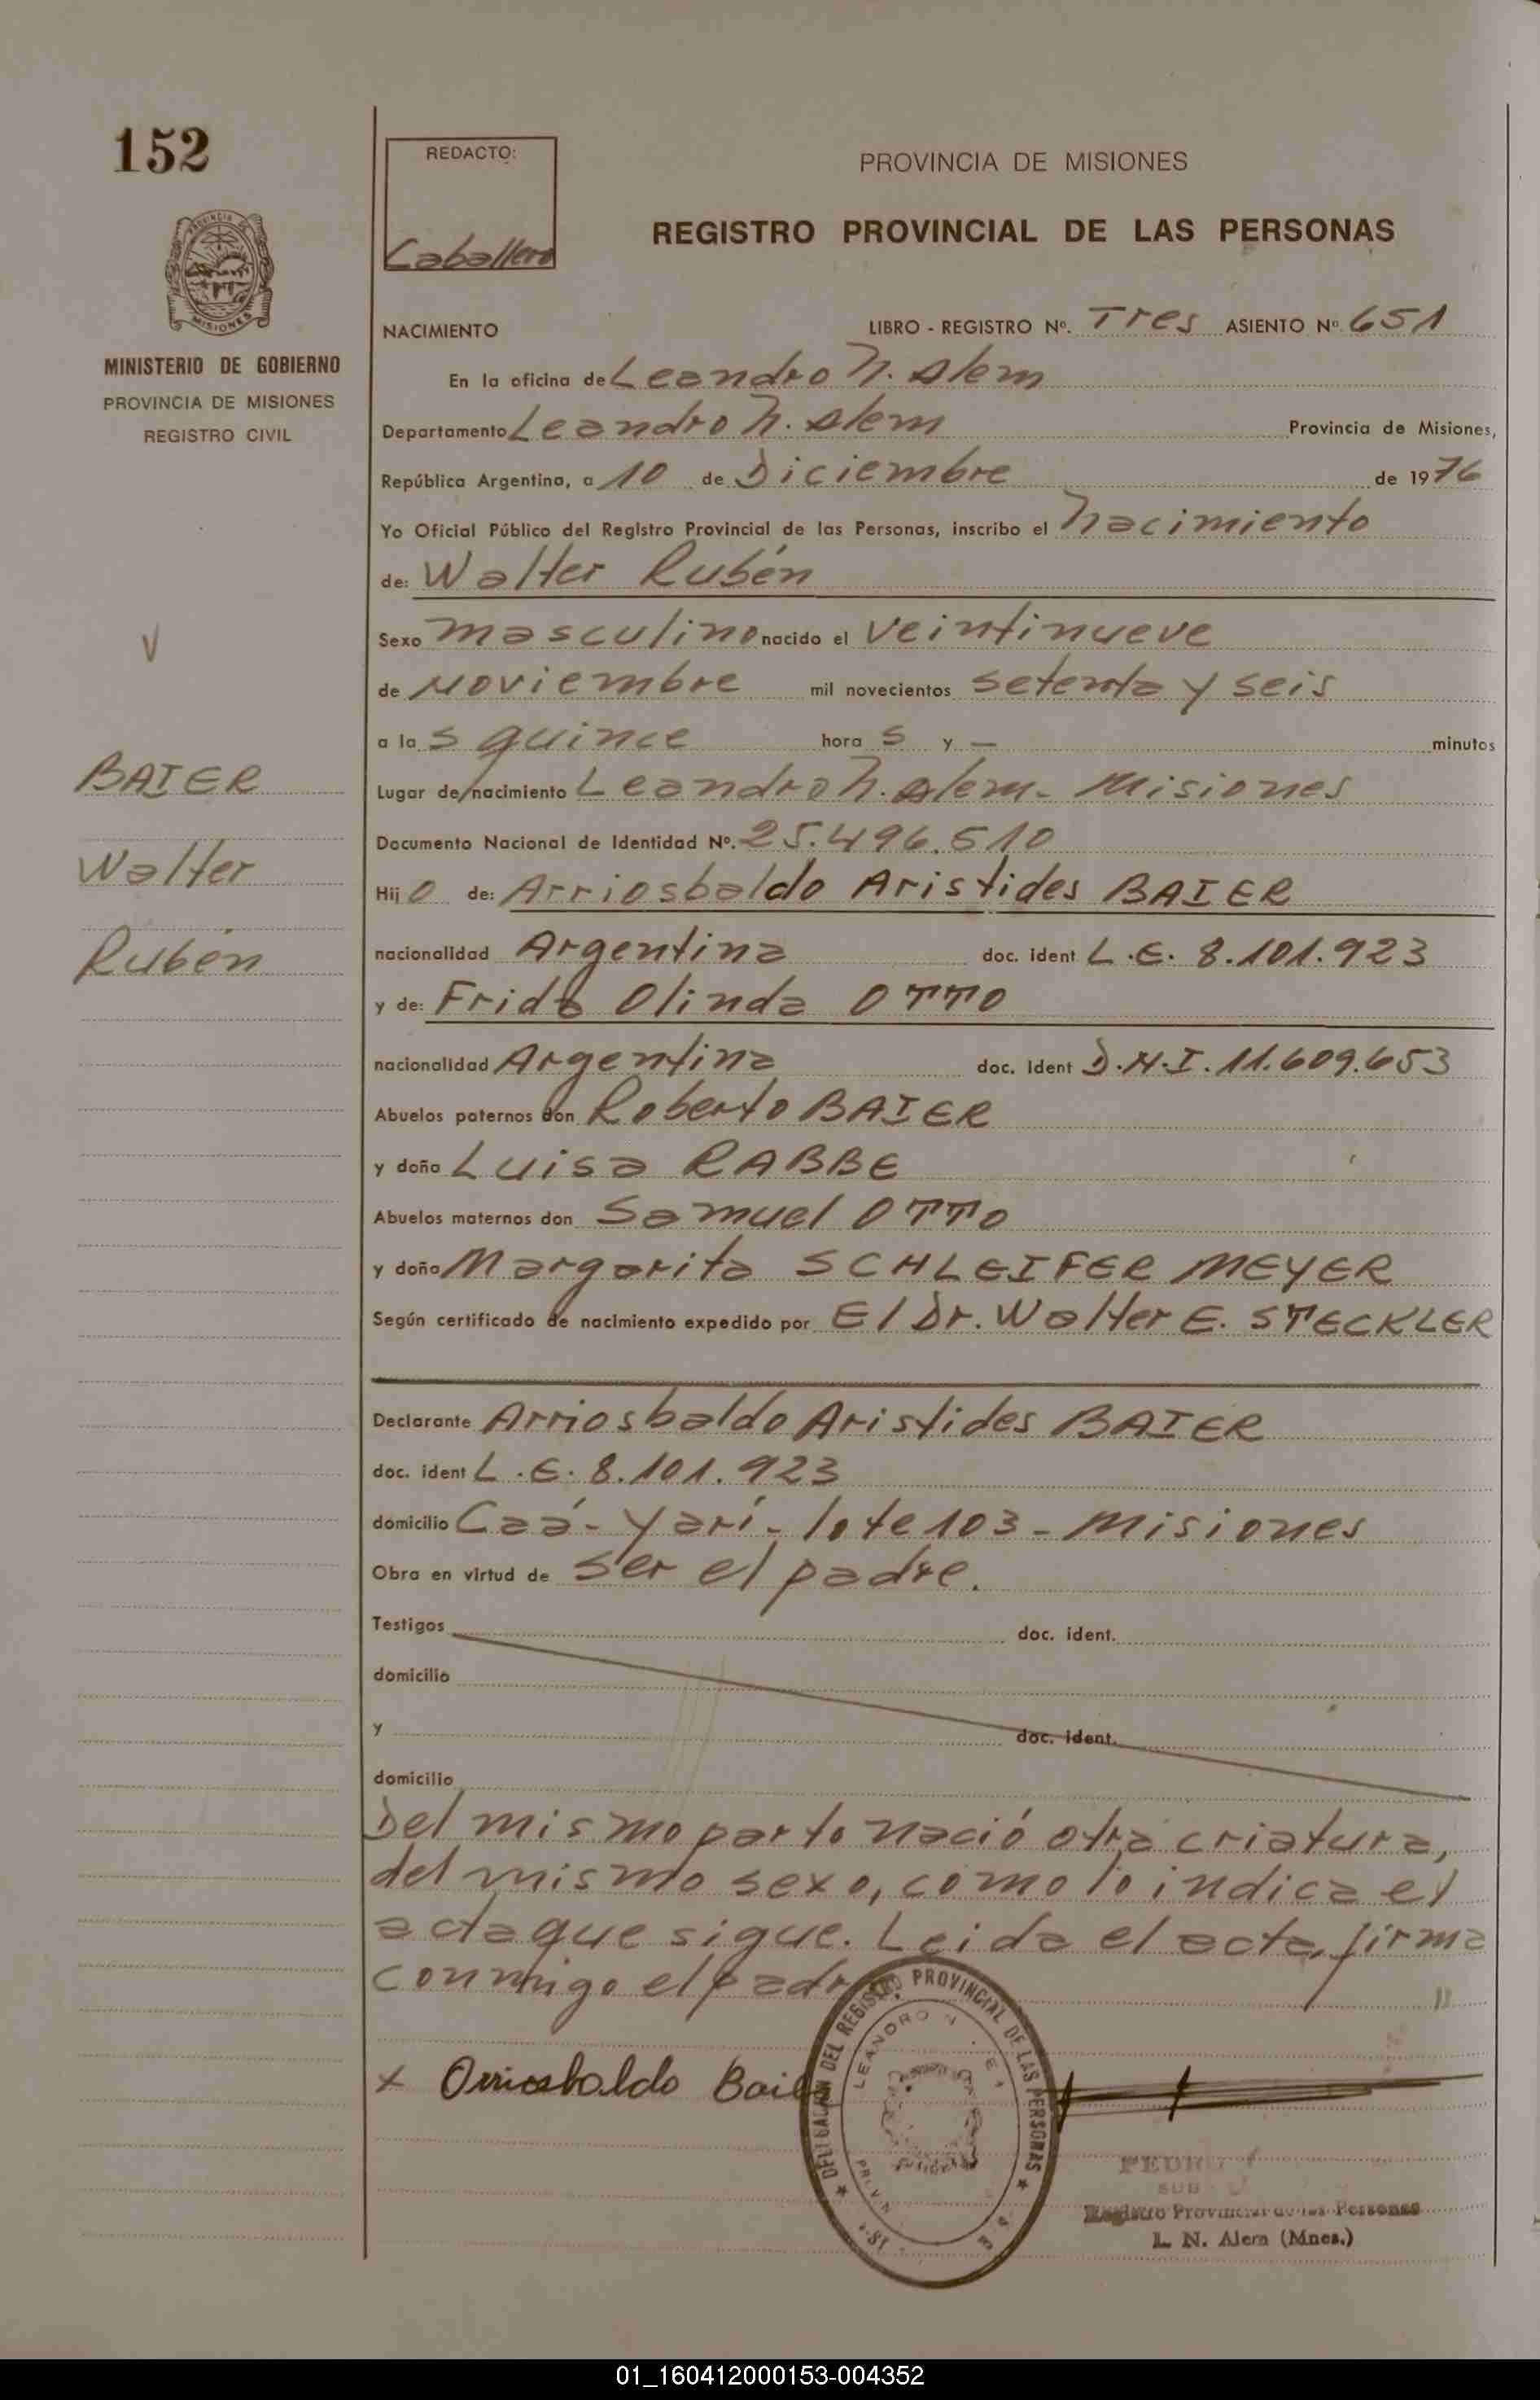 152
REDACTO:
Caballero
PROVINCIA DE MISIONES
REGISTRO PROVINCIAL DE LAS PERSONAS
MISIONES
MINISTERIO DE GOBIERNO
PROVINCIA DE MISIONES
REGISTRO CIVIL
NACIMIENTO LIBRO - REGISTRO Nº. Tres ASIENTO Nº 651
En la oficina de Leandro N. Alem
Departamento Leandro N. Alem Provincia de Misiones,
República Argentina, a 10 de Diciembre de 1976
Yo Oficial Público del Registro Provincial de las Personas, inscribo el Nacimiento
de: Walter Rubén
Sexo masculino nacido el veintinueve
de Noviembre mil novecientos setenta y seis
a la s quince hora s y — minutos
BAIER
Walter
Rubén
Lugar de nacimiento Leandro N. Alem - Misiones
Documento Nacional de Identidad Nº. 25.496.510
Hij o de: Arriosbaldo Aristides BAIER
nacionalidad Argentina doc. ident L.E. 8.101.923
y de: Frida Olinda OTTO
nacionalidad Argentina doc. ident D.N.I. 11.609.653
Abuelos paternos don Roberto BAIER
y doña Luisa RABBE
Abuelos maternos don Samuel OTTO
y doña Margarita SCHLEIFER MEYER
Según certificado de nacimiento expedido por El Dr. Walter E. STECKLER
Declarante Arriosbaldo Aristides BAIER
doc. ident L.E. 8.101.923
domicilio Caá-Yarí - lote 103 - Misiones
Obra en virtud de ser el padre.
Testigos doc. ident.
domicilio
y doc. ident.
domicilio
Del mismo parto nació otra criatura,
del mismo sexo, como lo indica el
acta que sigue. Leida el acta, firma
conmigo el padre
x Arriosbaldo Baier
DELEGACION DEL REGISTRO PROVINCIAL DE LAS PERSONAS
LEANDRO N.
PEDRO
SUB
Registro Provincial de las Personas
L. N. Alem (Mnes.)
01_160412000153-004352